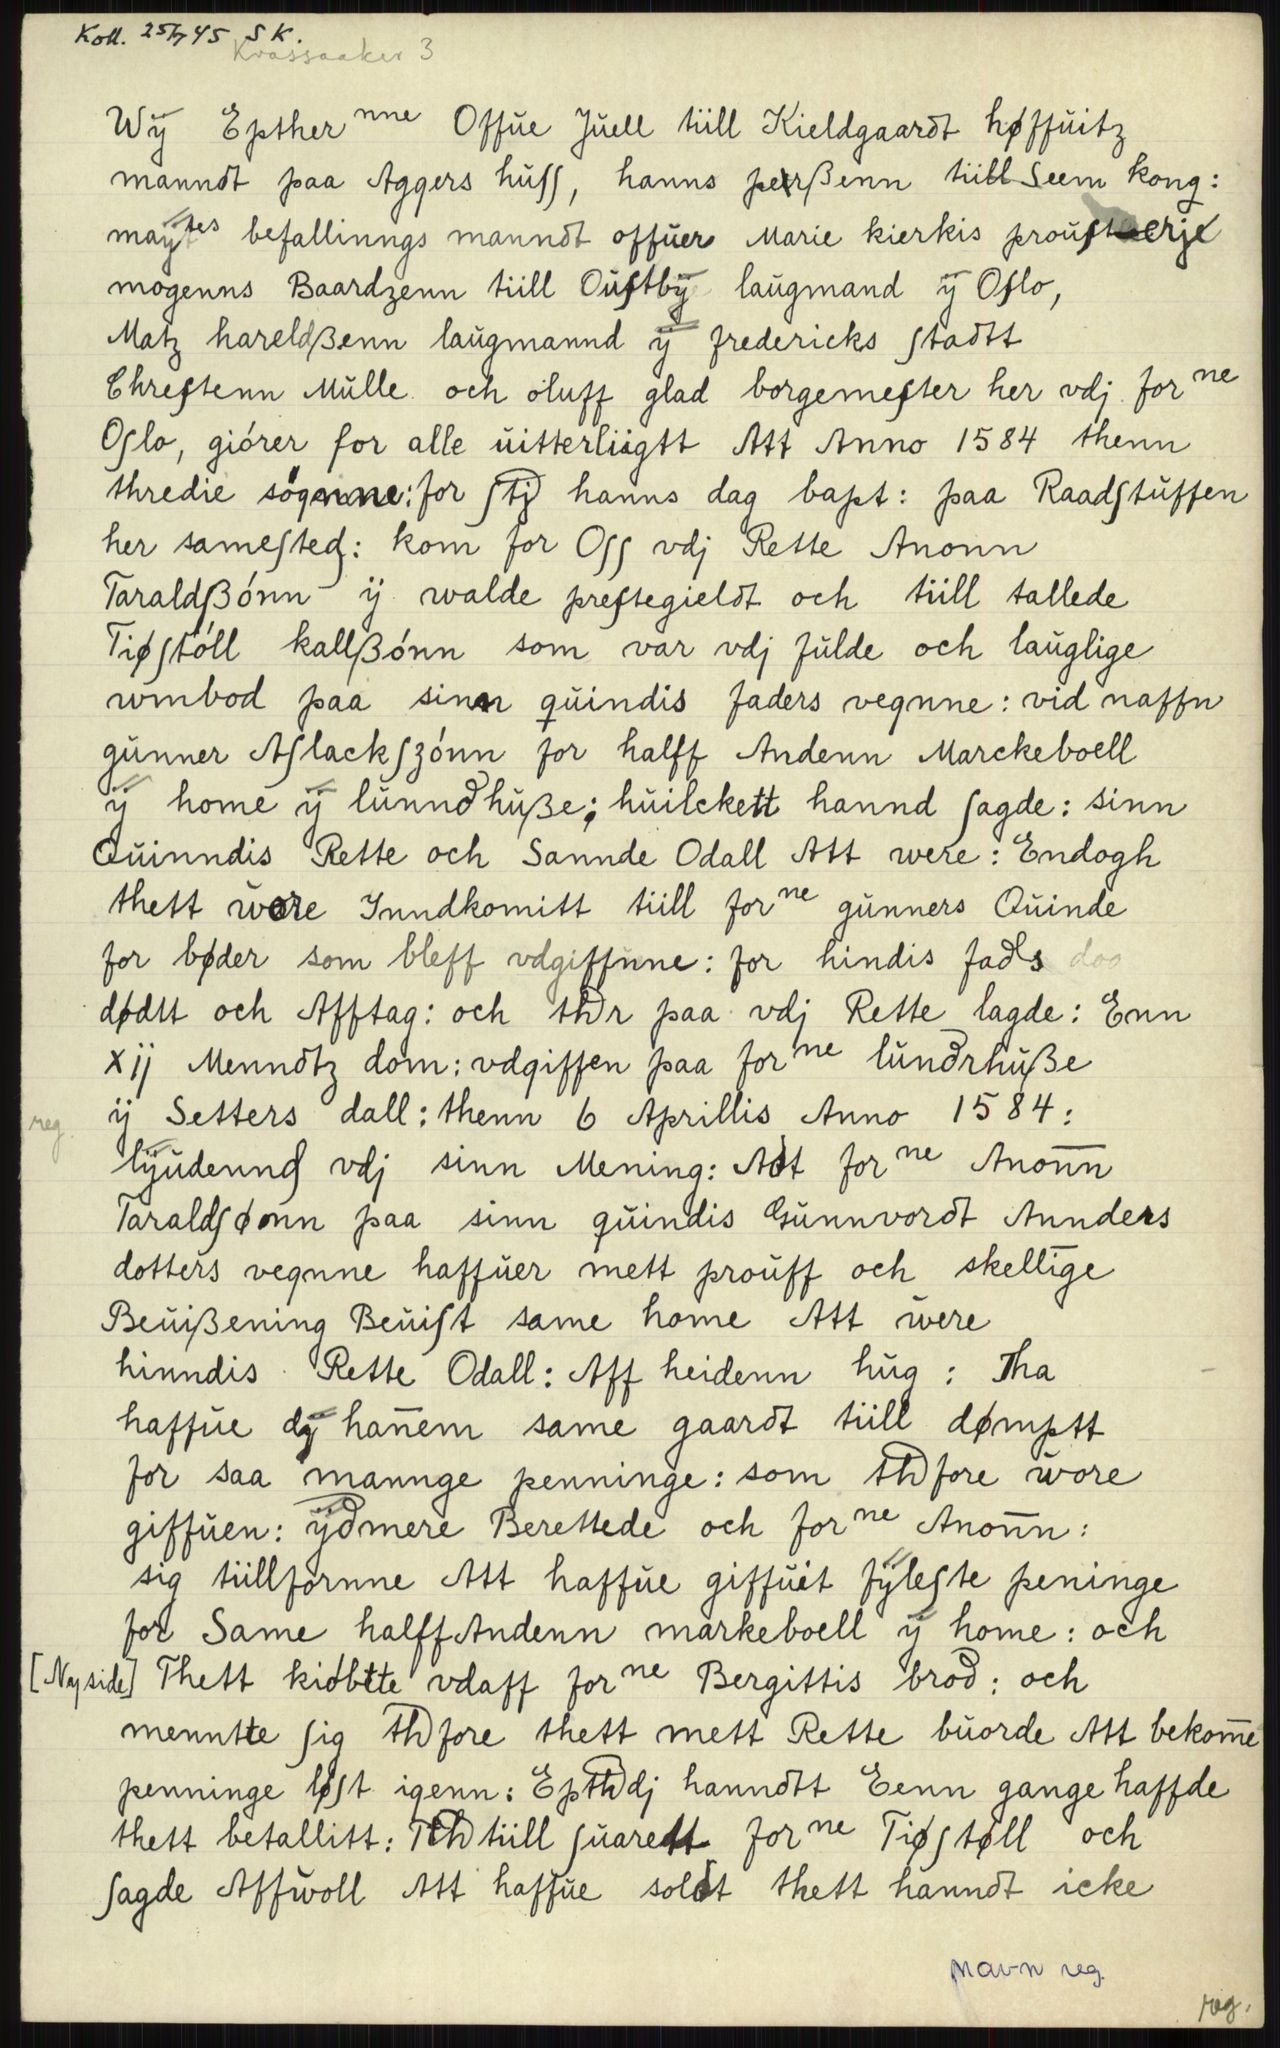 Koll. 25/7 45 S K.
Krossaaker 3
Wÿ Epther nne Offŭe Jŭell tiill Kieldgaardt høffŭitz
manndt paa Aggers hŭſſ, hanns perßenn tiill Seem kong:
maÿtes befallinngs manndt offŭer Marie kierkis proŭſterje
mogenns Baardzenn tiill Oŭſtbÿ laŭgmand ÿ Oſlo,
Matz hareldßenn laŭgmannd ÿ fredericks ſtadtt
Chreſtenn Mŭlle och olŭff glad borgemeſter her vdj for ne
Oſlo, giórer for alle ŭitterliigtt Att Anno 1584 thenn
thredie sögnne: for ſtj hanns dag bapt: paa Raadſtŭffen
her sameſted: kom for Oſſ vdj Rette Anonn
Taraldſßónn ÿ walde preſtegieldt och tiill tallede
Tiøſtóll kallßónn som var vdj fŭlde och laŭglige
wmbod paa sinn qŭindis faders vegnne: vid naffn
gŭnner Aſlackſzónn for halff Andenn Marckeboell
ÿ home ÿ lŭnndhŭße; hŭilckett hannd ſagde: sinn
Qŭinndis Rette och Sannde Odall Att were: Endogh
thett wŏre Inndkomitt tiill for ne gŭnners Qŭinde
for bøder som bleff vdgiffŭne: for hindis fads doo
dødtt och Afftag: och thr paa vdj Rette lagde: Enn
xij Menndtz dom: vdgiffen paa for ne lŭndrhŭße
reg. ÿ Setters dall: thenn 6 Aprillis Anno 1584:
lÿŭdennd vdj sinn Mening: Adt for ne Anon̅n
Taraldſønn paa sinn qŭindis Gŭnnvordt Annders
dotters vegnne haffŭer mett proŭff och skellige
Beŭißening Beŭiſt same home Att wĕre
hinndis Rette Odall: Aff heidenn hŭg: Tha
haffŭe dÿ han̅em same gaardt tiill dømptt
for saa mannge penninge: som thfore wŏre
giffŭen: ÿdmere Berettede och for ne Anon̅n:
sig tiillfornne Att haffŭe giffŭit fÿleſte peninge
for Same halff Andenn markeboell ÿ home: och
[Ny side] Thett kióbtte vdaff for ne Bergittis brod: och
menntte ſig thfore thett mett Rette bŭorde Att bekom̅e
penninge løſt igenn: Epthdj hanndtt Eenn gange haffde
thett betallitt: Thtiill ſŭarett for ne Tiøſtøll och
ſagde Affwŏll Att haffŭe soldt thett hanndt icke
navn reg.
reg.